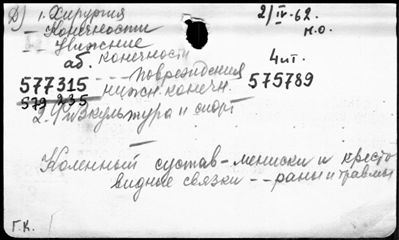 Д) 1. Хирургия 2/IV-62.
Конечности н.о.
Движение
аб. конечности 4 ит.
577315 -- Повреждения 575789
579 235 нижн. конечн.
2. Физкультура и спорт
Коленный сустав - мениски и кресто
видные связки -- раны и травмы
Г.К.